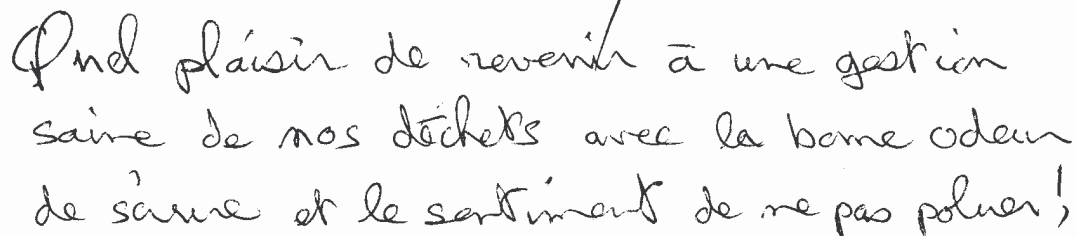 Qnd plaisir de revenir à une gestion
saine de nos déchets avec la bonne odeur
de sciure et le sentiment de ne pas poluer !